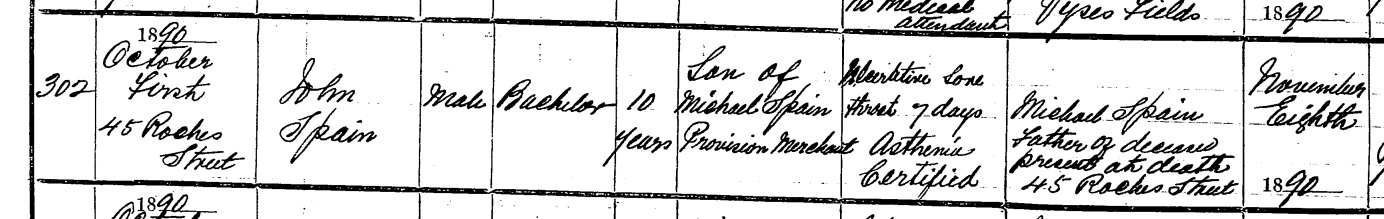 no Medical
attendant
Pypes Fields
1890
302
1890
October
First
45 Roches
Street
John
Spain
Male
Bachelor
10
years
Son of
Michael Spain
Provision Merchant
Ulcerative Sore
throat 7 days
Asthenia
Certified
Michael Spain
Father of deceased
present at death
45 Roches Street
November
Eighth
1890
1890